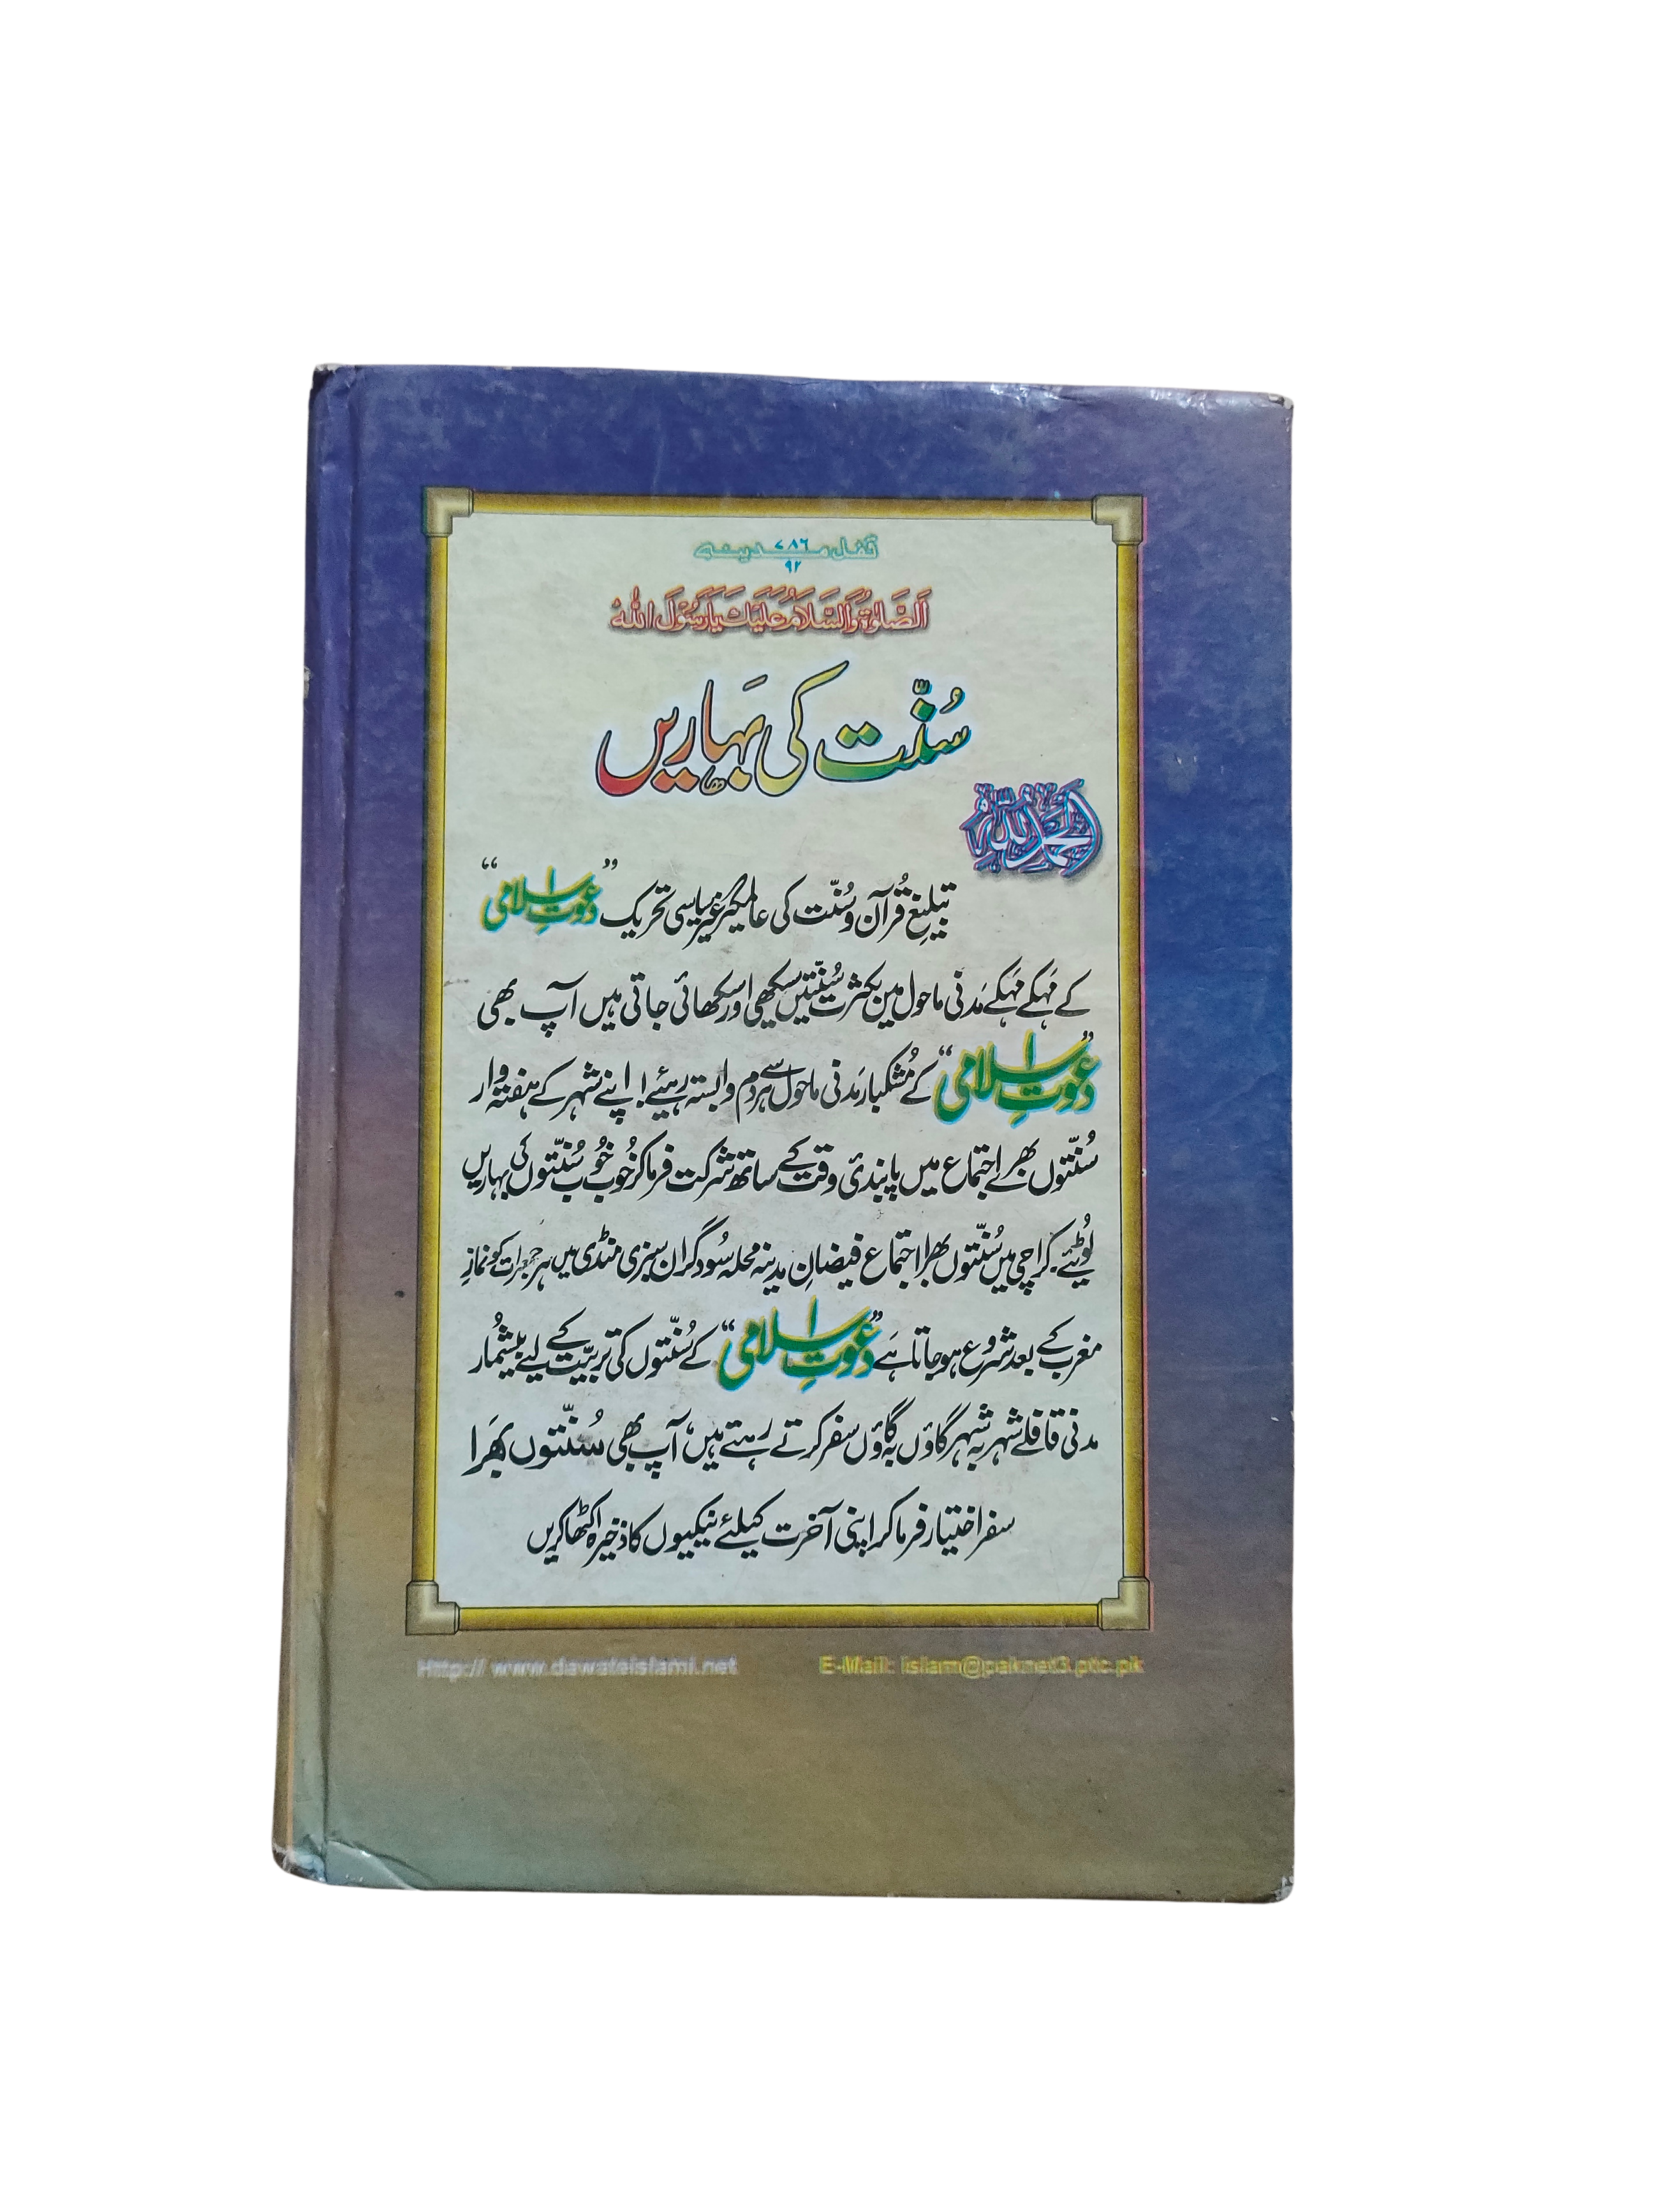 ٧٨٦
قفل مدینہ
٩٢
اَلصَّلٰوۃُ وَالسَّلَامُ عَلَیْكَ یَارَسُوْلَ اللہ
سُنّت کی بَہاریں
اَلْحَمْدُ لِلّٰہ
تبلیغِ قُرآن و سُنّت کی عالمگیر غیر سیاسی تحریک ”دعوتِ اسلامی“
کے مَہکے مَہکے مَدنی ماحول میں بکثرت سُنّتیں سیکھی اور سکھائی جاتی ہیں آپ بھی
”دعوتِ اسلامی“ کے مُشکبار مَدنی ماحول سے ہر دم وابستہ رہئیے! اپنے شہر کے ہفتہ وار
سُنّتوں بھرے اجتماع میں پابندیٔ وقت کے ساتھ شرکت فرما کر خُوب خُوب سُنّتوں کی بہاریں
لُوٹیئے۔ کراچی میں سُنّتوں بھرا اجتماع فیضانِ مدینہ محلہ سُوداگران سبزی منڈی میں ہر جمعرات کو نمازِ
مغرب کے بعد شروع ہو جاتا ہَے ”دعوتِ اسلامی“ کے سُنّتوں کی تربیّت کے لیے بیشُمار
مدنی قافلے شہر بہ شہر گاؤں بہ گاؤں سفر کرتے رہتے ہیں، آپ بھی سُنّتوں بھَرا
سفر اختیار فرما کر اپنی آخرت کیلئے نیکیوں کا ذخیرہ اکٹھا کریں
Http:// www.dawateislami.net E-Mail: islam@paknet3.ptc.pk